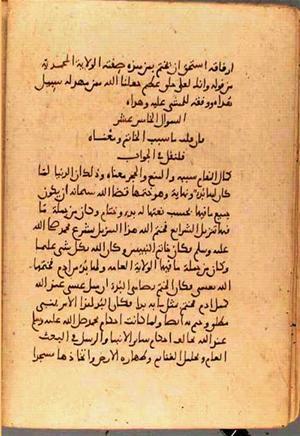 ارفاقه استحق ان يختم بمن هذه صفته الولاية المحمدية
من قوله وانك لعلى خلق عظيم جعلنا الله ممن مهد له سبيل
هداه ووفقه للمشي عليه وهداه
السوال الخامس عشر
فان قلت ما سبب الخاتم ومعناه
فلنقل في الجواب
كمال المقام سببه والمنع والحجر معناه وذلك ان الدنيا لما
كان لها بدء ونهاية وهو ختمها قضا الله سبحانه ان يكون
جميع ما فيها بحسب نعتها له بدء وختام وكان من جملة ما
فيها تنزيل الشرايع فختم الله هذا التنزيل بشرع محمد صلا الله
عليه وسلم فكان خاتم النبيين وكان الله بكل شي عليما
وكان من جملة ما فيها الولاية العامة ولها بدء من ادم فختمها
الله بعيسى فكان الختم يضاهي البدء ان مثل عيسى عند الله
كمثل ادم فختم بمثل ما به بدا فكان البدء لهذا الامر بنبي
مطلق وختم به ايضا ولما كانت احكام محمد صلى الله عليه وسلم
عند الله تخالف احكام ساير الانبيا والرسل في البعث
العام وتحليل الغنايم وطهارة الارض واتخاذها مسجدا